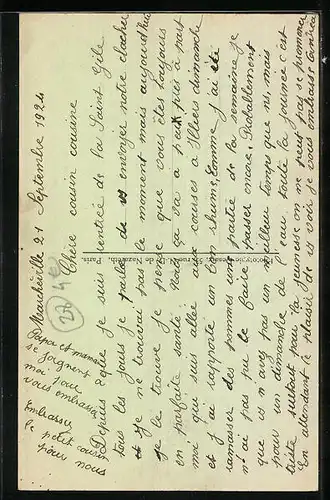 Marchéville 21 Septembre 1924
Chère cousin cousine
Depuis que je suis rentrée de la Saint Gile
tous les jours je parlais de vs envoyer notre clocher
et je ne trouvai pas le moment mais aujourd'hui
je le trouve je pense que vous êtes toujours
en parfaite santé Nous ça va à peu près à part
moi qui suis allée aux courses à Illiers dimanche
et j'ai rapporté un bon rhume, comme j'ai été
ramasser des pommes une partie de la semaine je
n'ai pas pu le faire passer encore. Probablement
que vs n'avez pas un meilleur temps que ns, mais
pour un dimanche de l'eau toute la journée c'est
triste surtout pour la jeunesse on ne peut pas se promener
En attendant le plaisir de vs voir je vous embrasse
Papa et maman
se joignent à
moi pour
vous embrasser
Embrasser
le petit cousin
pour nous
22 4e